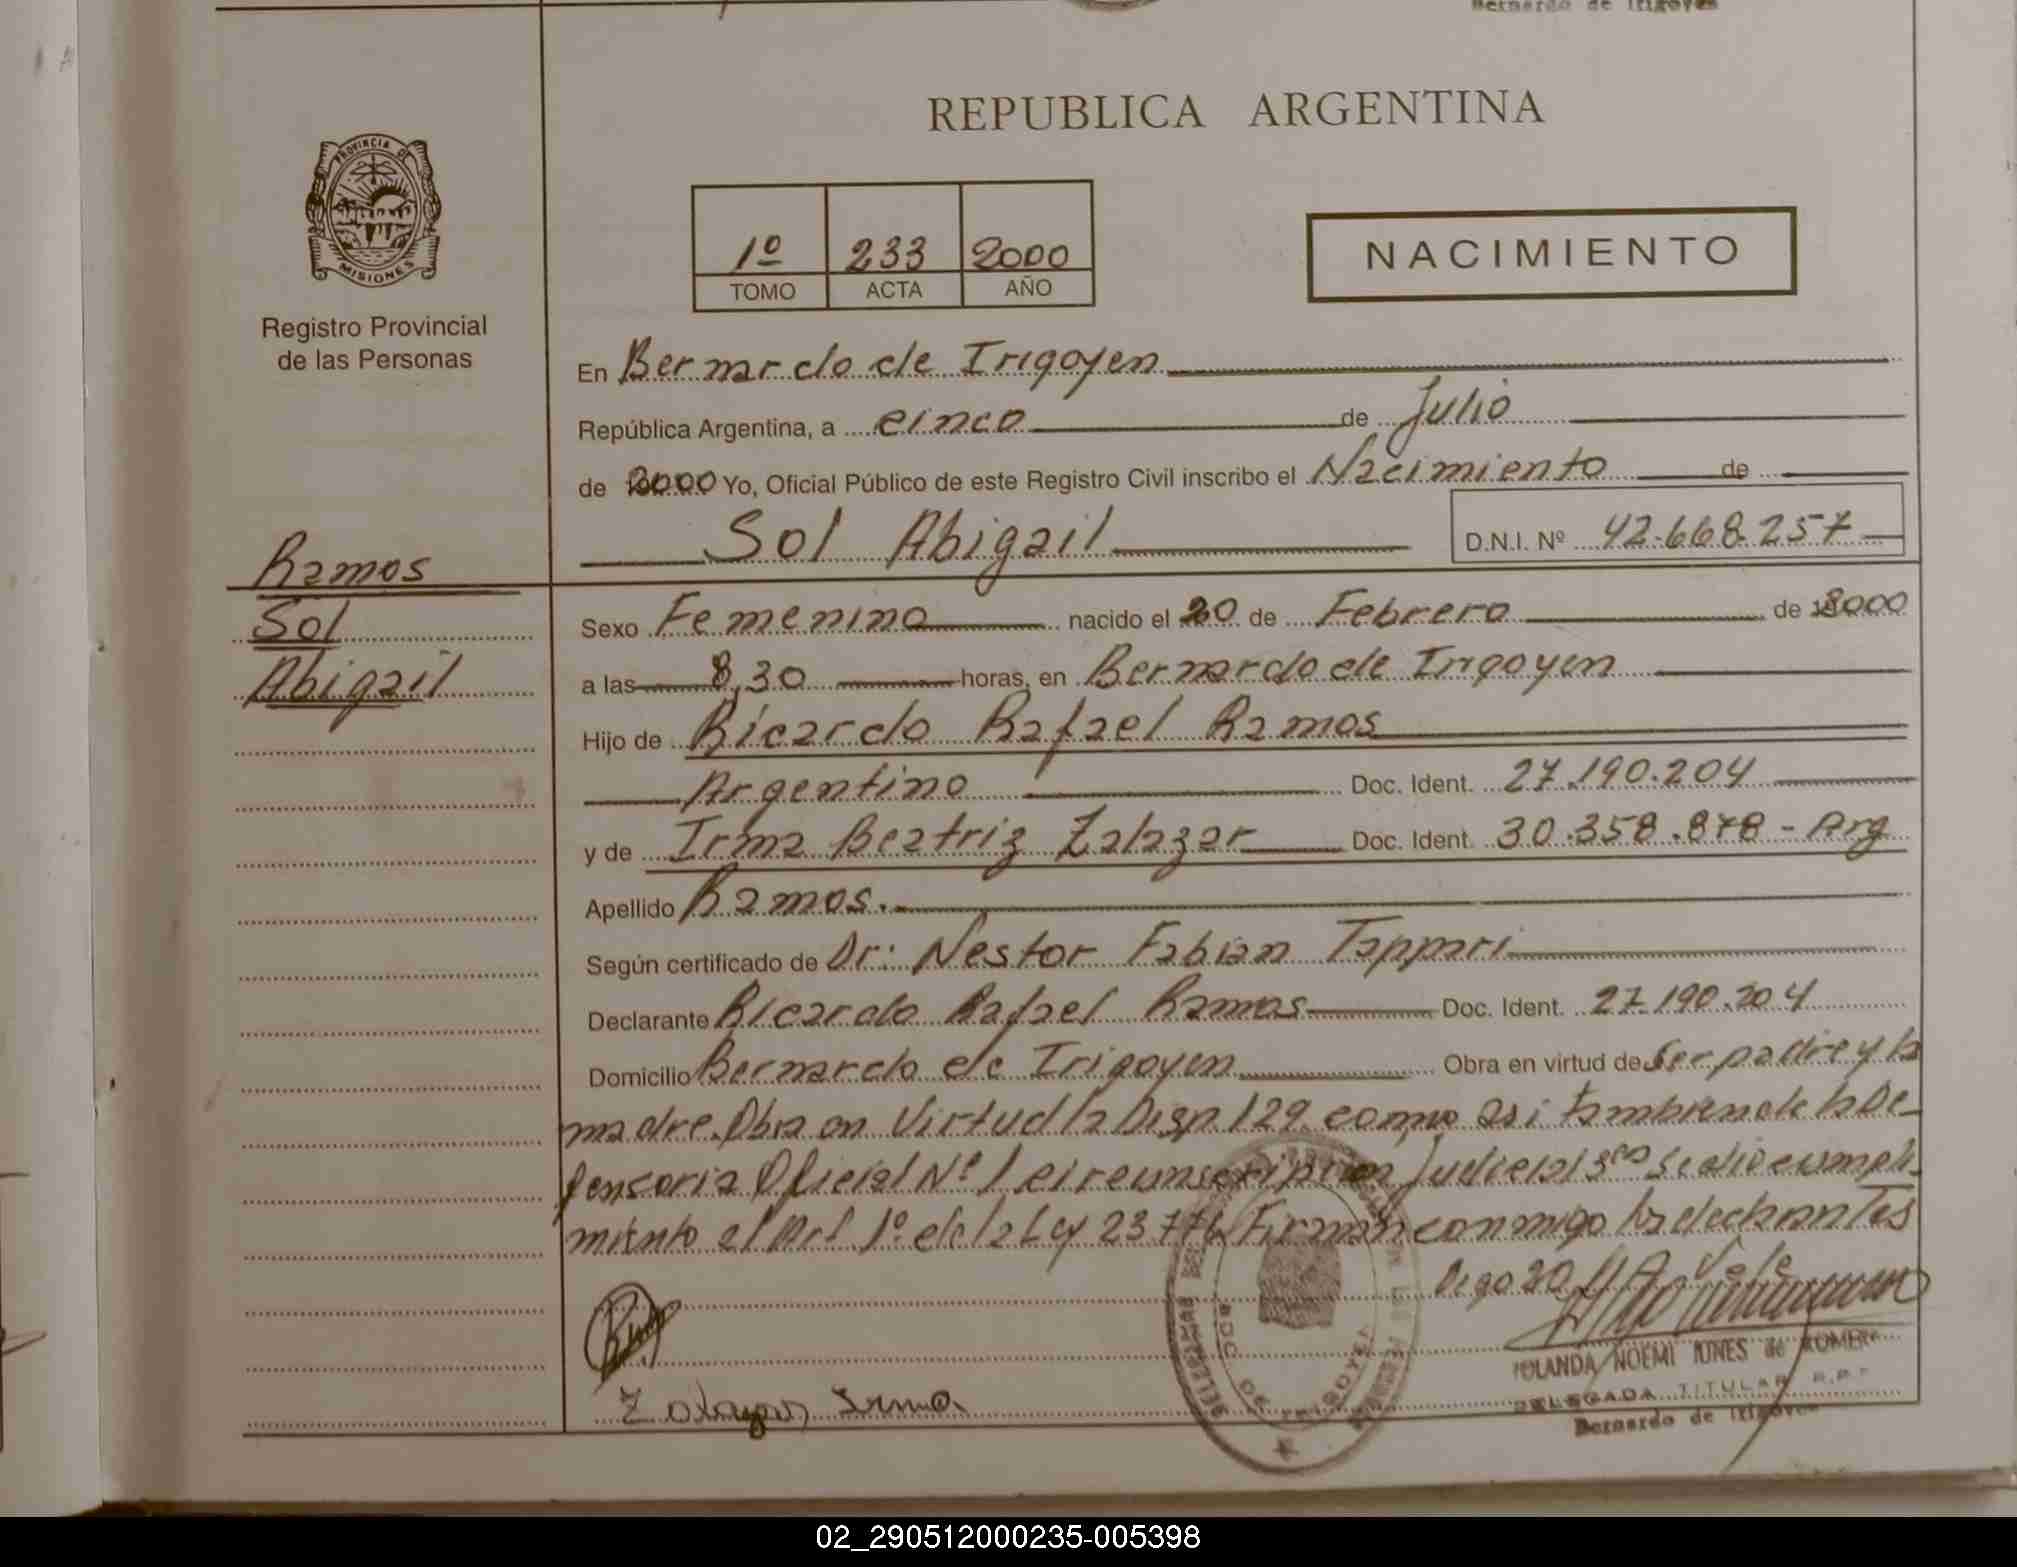 Bernardo de Irigoyen
REPUBLICA ARGENTINA
PROVINCIA DE
MISIONES
Registro Provincial
de las Personas
1º 233 2000
TOMO ACTA AÑO
NACIMIENTO
En Bernardo de Irigoyen
República Argentina, a cinco de Julio
de 2000 Yo, Oficial Público de este Registro Civil inscribo el Nacimiento de
Sol Abigail D.N.I. Nº 42.668.257
Ramos
Sol
Abigail
Sexo Femenino nacido el 20 de Febrero de 2000
a las 8,30 horas, en Bernardo de Irigoyen
Hijo de Ricardo Rafael Ramos
Argentino Doc. Ident. 27.190.204
y de Irma Beatriz Zalazar Doc. Ident. 30.358.878 - Arg
Apellido Ramos.
Según certificado de Dr: Nestor Fabian Tappari
Declarante Ricardo Rafael Ramos Doc. Ident. 27.190.204
Domicilio Bernardo de Irigoyen Obra en virtud de ser padre y la
madre. Obra en Virtud la Disp. 129. como asi tambien de la De-
fensoria Oficial Nº 1 circunscripcion Judicial 3ra se dio cumpli-
miento al Art 1º. de la Ley 23776 Firman conmigo los declarantes
Digo 20 Vale
Zalazar Irma
YOLANDA NOEMI JONES de ROMERO
DELEGADA TITULAR R.P.
Bernardo de Irigoyen
02_290512000235-005398